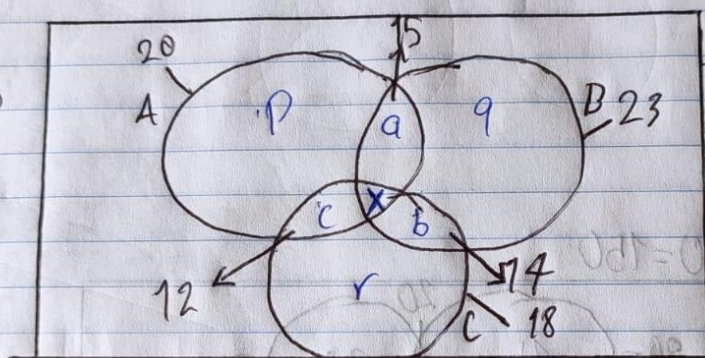 15
20
A
p
a
q
B 23
c
x
b
12
r
14
C 18